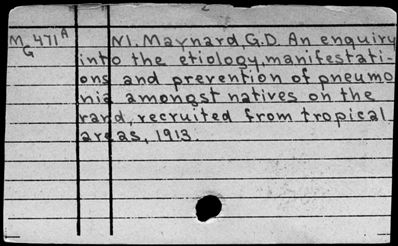 MG 471A N1. Maynard, G.D. An enquiry
into the etiology, manifestati-
ons and prevention of pneumo
nia amongst natives on the
rand, recruited from tropical
areas, 1913.